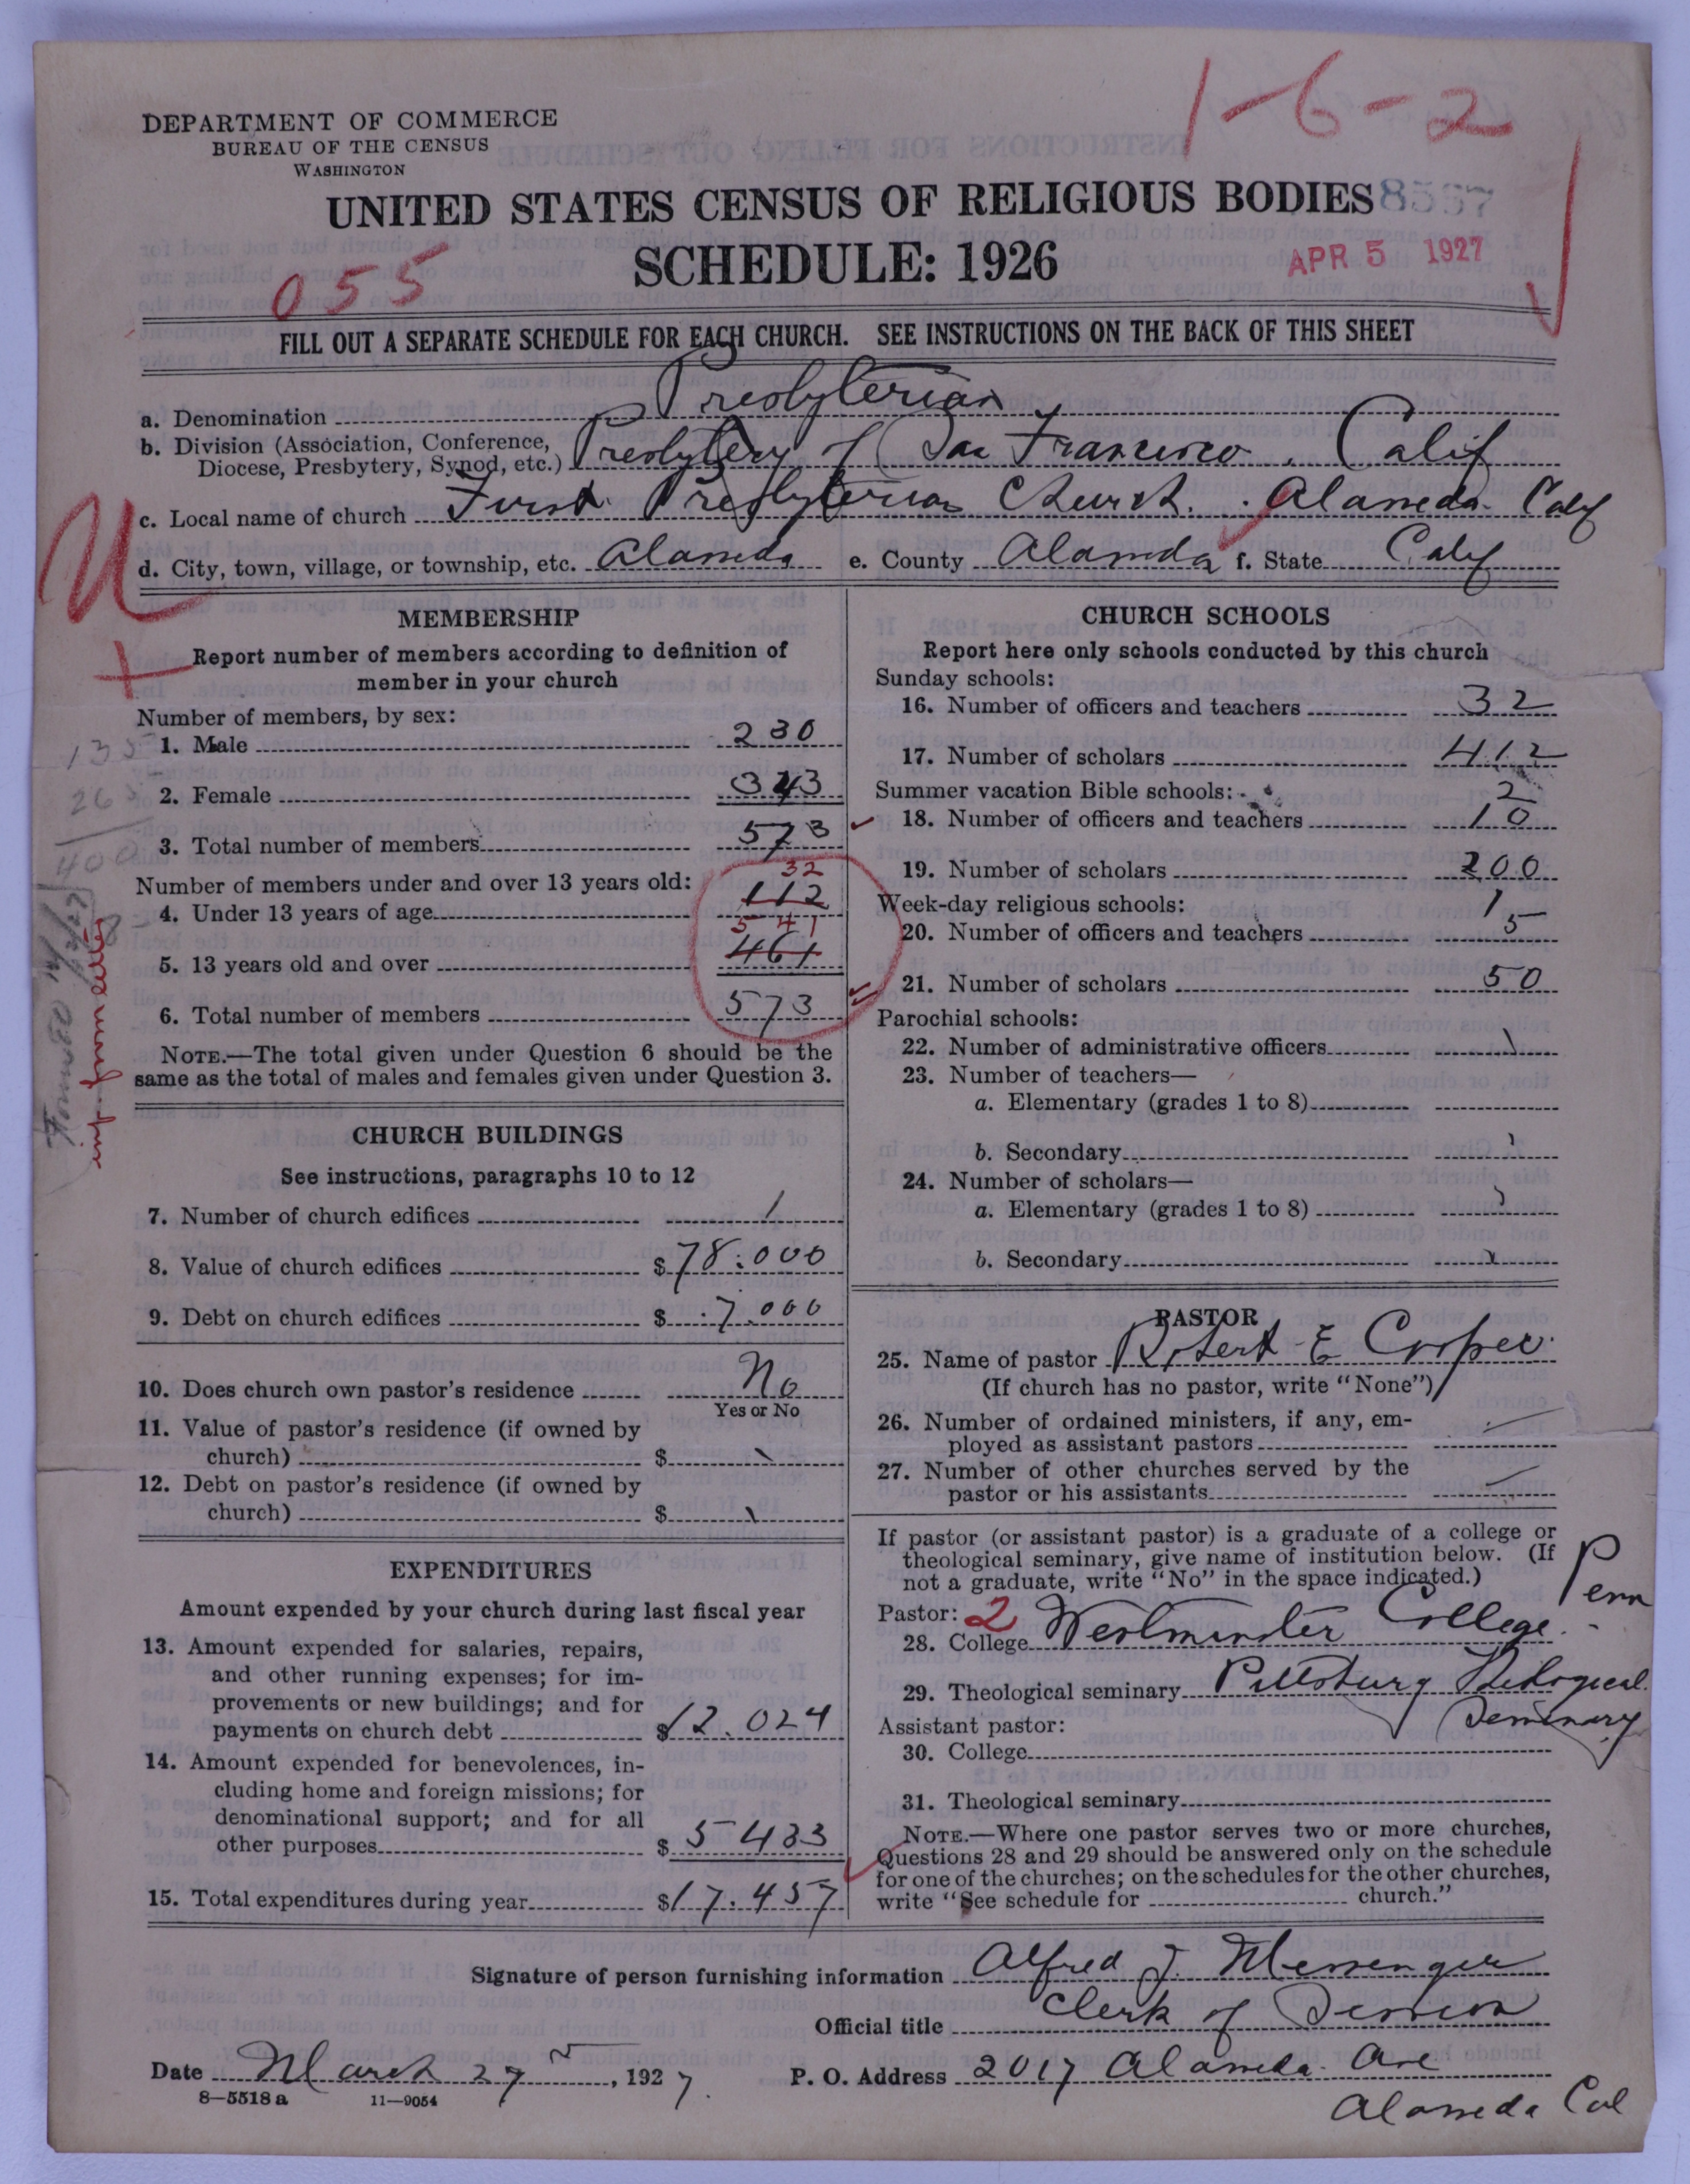 1-6-2
DEPARTMENT OF COMMERCE
BUREAU OF THE CENSUS
WASHINGTON
UNITED STATES CENSUS OF RELIGIOUS BODIES
SCHEDULE: 1926
APR 5 1927
055
FILL OUT A SEPARATE SCHEDULE FOR EACH CHURCH. SEE INSTRUCTIONS ON THE BACK OF THIS SHEET
a. Denomination Presbyterian
b. Division (Association, Conference, Diocese, Presbytery, Synod, etc.) Presbytery of San Francisco, Calif
c. Local name of church First Presbyterian Church. Alameda. Calif
d. City, town, village, or township, etc. Alameda e. County Alameda f. State Calif
MEMBERSHIP
Report number of members according to definition of
member in your church
Number of members, by sex:
1. Male 230
2. Female 343
3. Total number of members 573
Number of members under and over 13 years old:
32
4. Under 13 years of age 112
541
5. 13 years old and over 461
6. Total number of members 573
NOTE.—The total given under Question 6 should be the
same as the total of males and females given under Question 3.
135
265
400
info from letter
CHURCH BUILDINGS
See instructions, paragraphs 10 to 12
7. Number of church edifices 1
8. Value of church edifices $78.000
9. Debt on church edifices $7.000
10. Does church own pastor's residence No
Yes or No
11. Value of pastor's residence (if owned by
church) $
12. Debt on pastor's residence (if owned by
church) $
EXPENDITURES
Amount expended by your church during last fiscal year
13. Amount expended for salaries, repairs,
and other running expenses; for im-
provements or new buildings; and for
payments on church debt $12.024
14. Amount expended for benevolences, in-
cluding home and foreign missions; for
denominational support; and for all
other purposes $5433
15. Total expenditures during year $17.457
CHURCH SCHOOLS
Report here only schools conducted by this church
Sunday schools:
16. Number of officers and teachers 32
17. Number of scholars 412
Summer vacation Bible schools:
2
18. Number of officers and teachers 10
19. Number of scholars 200
Week-day religious schools: 1
20. Number of officers and teachers 5
21. Number of scholars 50
Parochial schools:
22. Number of administrative officers
23. Number of teachers—
a. Elementary (grades 1 to 8)
b. Secondary
24. Number of scholars—
a. Elementary (grades 1 to 8)
b. Secondary
PASTOR
25. Name of pastor Robert E Cooper
(If church has no pastor, write "None")
26. Number of ordained ministers, if any, em-
ployed as assistant pastors
27. Number of other churches served by the
pastor or his assistants
If pastor (or assistant pastor) is a graduate of a college or
theological seminary, give name of institution below. (If
not a graduate, write "No" in the space indicated.)
Pastor: 2
28. College Westminster College. Penn
29. Theological seminary Pittsburg Theological
Seminary
Assistant pastor:
30. College
31. Theological seminary
NOTE.—Where one pastor serves two or more churches,
Questions 28 and 29 should be answered only on the schedule
for one of the churches; on the schedules for the other churches,
write "See schedule for church."
Signature of person furnishing information Alfred J. Messenger
Official title Clerk of Session
Date March 27, 1927. P. O. Address 2017 Alameda Ave
8-5518a 11-9054
Alameda Cal